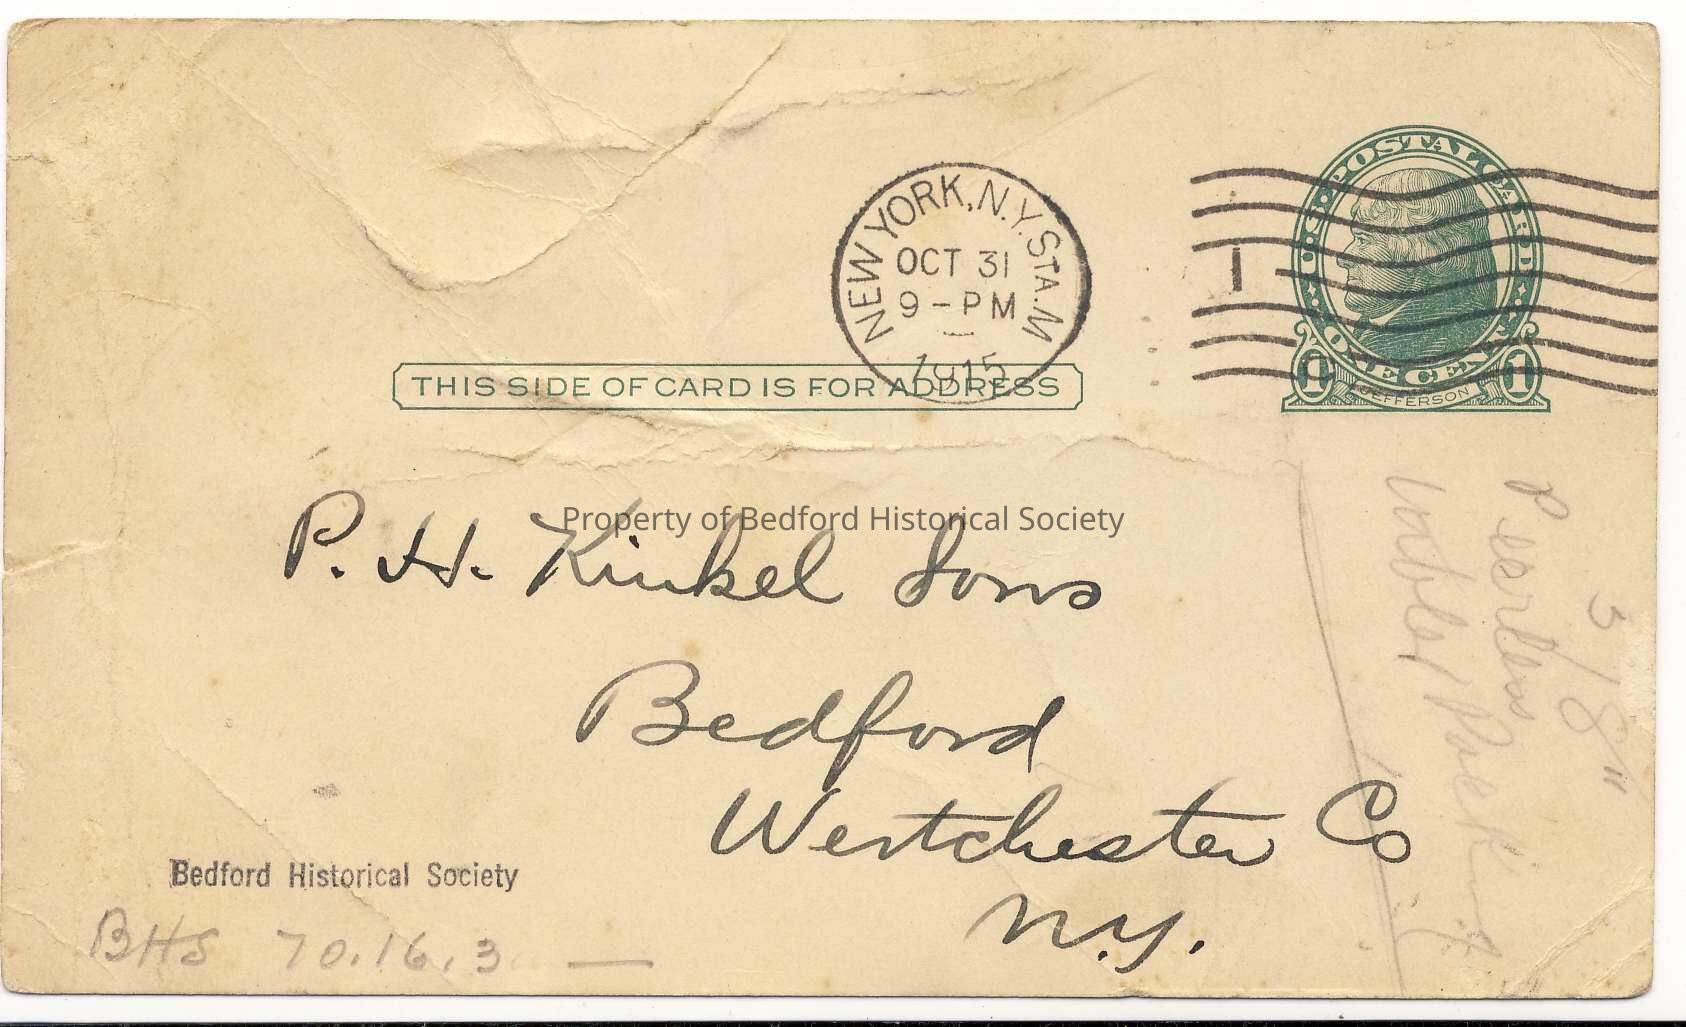 U·S·POSTAL CARD
ONE CENT
1 JEFFERSON 1
NEW YORK, N.Y. STA. M
OCT 31
9-PM
1915
1
THIS SIDE OF CARD IS FOR ADDRESS
P. H. Kinkel Sons
Property of Bedford Historical Society
Bedford
Westchester Co
N.Y.
3/8"
Peerless
Bedford Historical Society
BHS 70.16.3 —